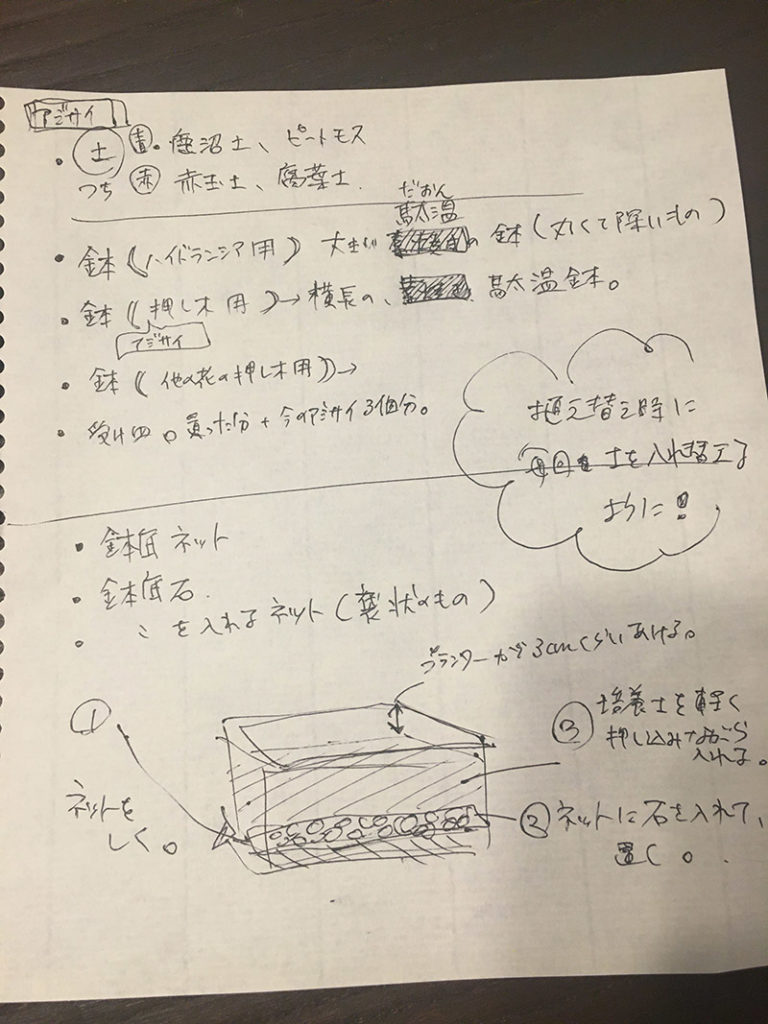 アジサイ
・土 青・鹿沼土、ピートモス
つち 赤 赤玉土、腐葉土.
だおん
駄太温
・鉢(ハイドランジア用) 大きい の鉢(丸くて深いもの)
・鉢(押し木用)→横長の、 駄太温鉢。
アジサイ
・鉢(他の花の押し木用)→
・受け皿。買った分+今のアジサイ3個分。
植え替え時に
毎回 土を入れ替える
ように!
・鉢底ネット
・鉢底石.
・ 〃を入れるネット(袋状のもの)
プランターから3cmくらいあける。
①
ネットを
しく。
③培養土を軽く
押し込みながら
入れる。
②ネットに石を入れて、
置く。